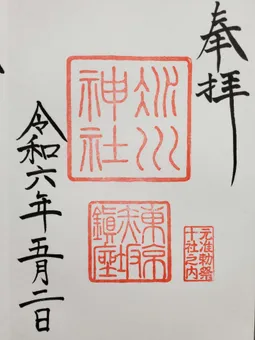 奉拝
氷川
神社
元准勅祭
十社之内
東京
赤坂
鎮座
令和六年五月二日